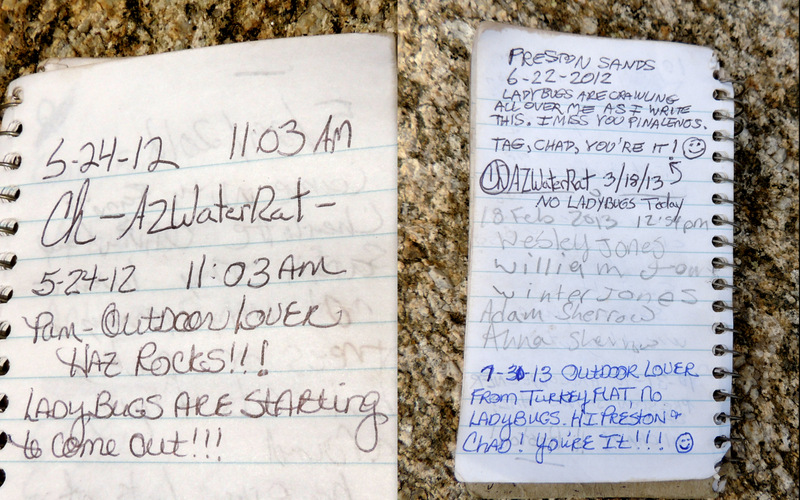 5-24-12 11:03 AM
Ch -AZWaterRat-
5-24-12 11:03 AM
Pam - OUTDOOR LOVER
HAZ ROCKS!!!
LADYBUGS ARE STARTING
to Come Out!!!
PRESTON SANDS
6-22-2012
LADYBUGS ARE CRAWLING
ALL OVER ME AS I WRITE
THIS. I MISS YOU PINALENOS.
TAG, CHAD, YOU'RE IT!
Ch AZWaterRat 3/18/13
NO LADYBUGS Today
18 Feb 2013 12:54pm
Wesley Jones
William
Winter Jones
Adam Sherrow
Anna Sherrow
OUTDOOR LOVER
FROM TURKEY FLAT, NO
LADYBUGS. HI PRESTON &
CHAD! YOU'RE IT!!!